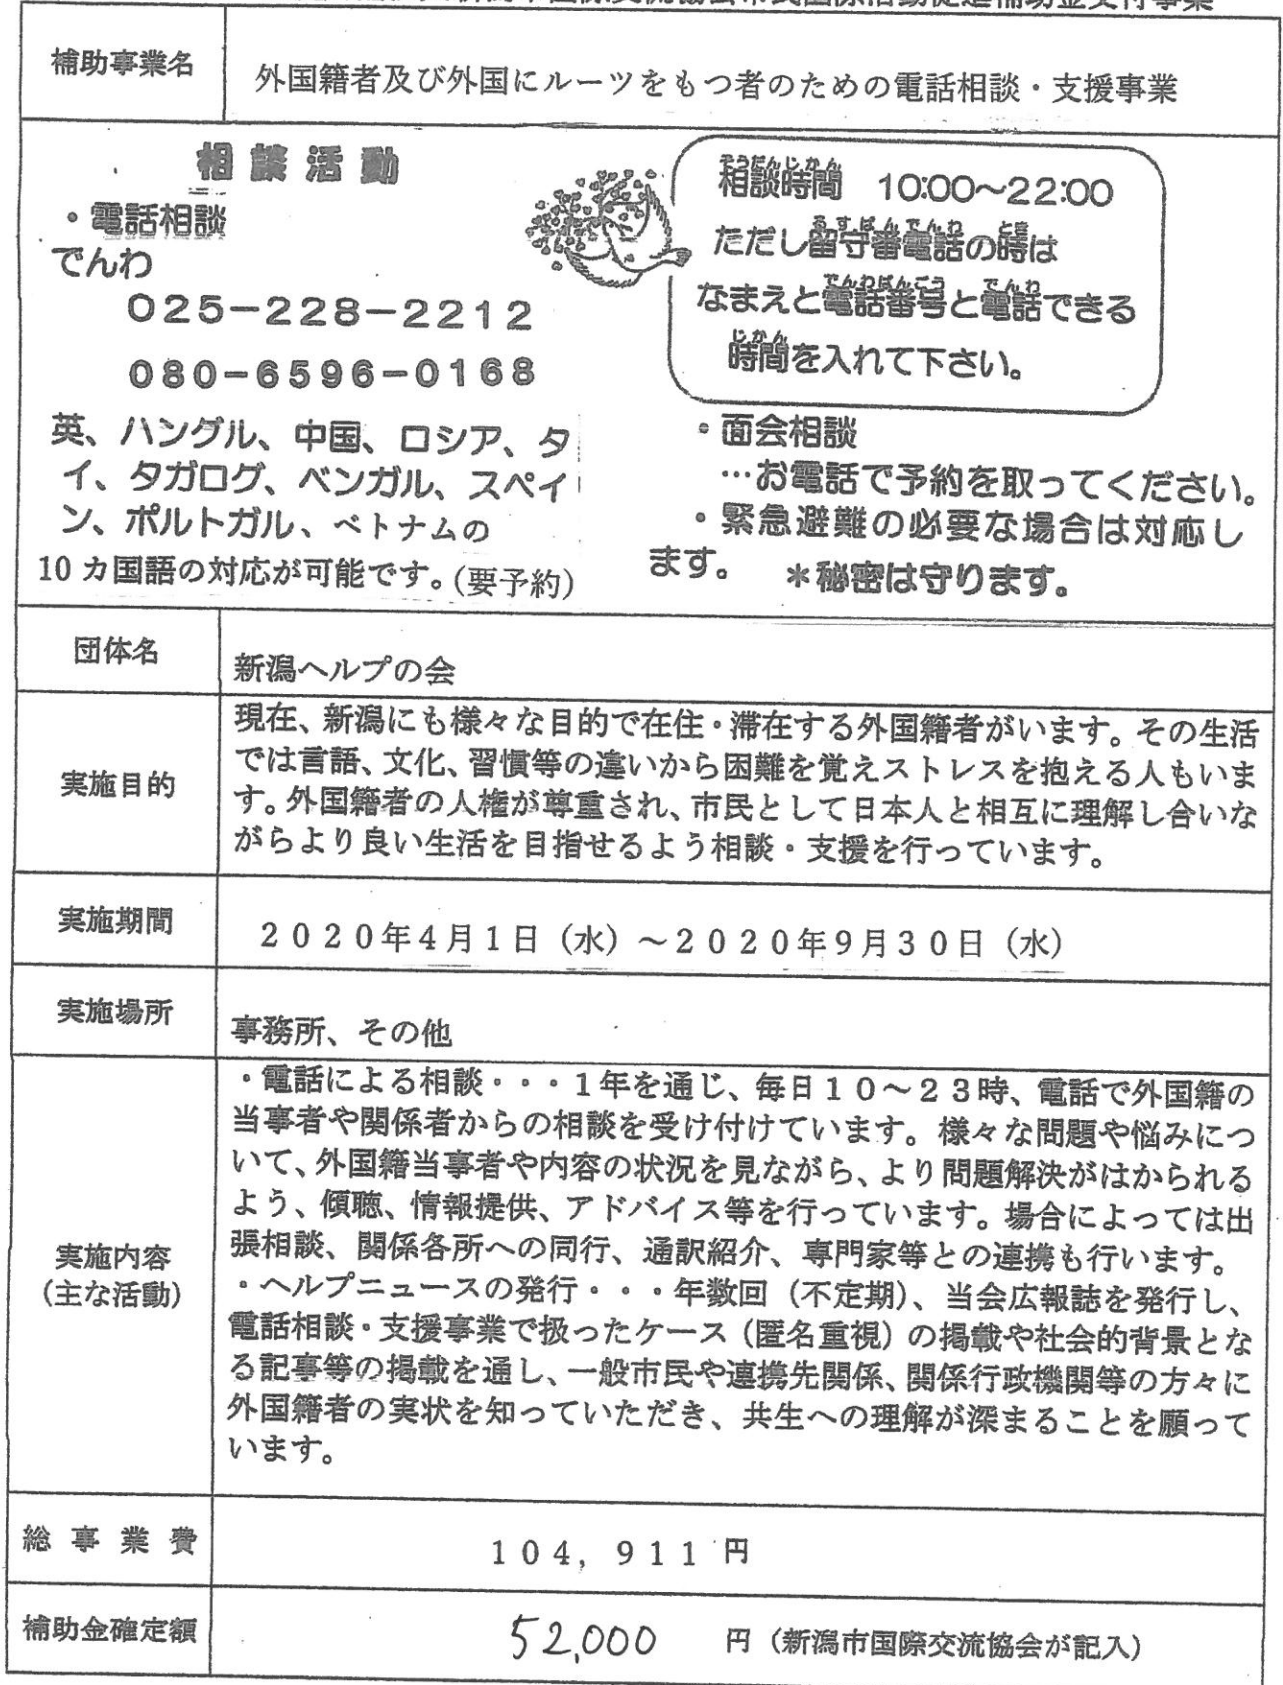 補助事業名
外国籍者及び外国にルーツをもつ者のための電話相談・支援事業
相談活動
・電話相談
でんわ
025-228-2212
080-6596-0168
英、ハングル、中国、ロシア、タ
イ、タガログ、ベンガル、スペイ
ン、ポルトガル、ベトナムの
10カ国語の対応が可能です。(要予約)
そうだんじかん
相談時間 10:00~22:00
るすばんでんわ とき
ただし留守番電話の時は
でんわばんごう でんわ
なまえと電話番号と電話できる
じかん
時間を入れて下さい。
・面会相談
…お電話で予約を取ってください。
・緊急避難の必要な場合は対応し
ます。 *秘密は守ります。
団体名
新潟ヘルプの会
実施目的
現在、新潟にも様々な目的で在住・滞在する外国籍者がいます。その生活
では言語、文化、習慣等の違いから困難を覚えストレスを抱える人もいま
す。外国籍者の人権が尊重され、市民として日本人と相互に理解し合いな
がらより良い生活を目指せるよう相談・支援を行っています。
実施期間
2020年4月1日(水)~2020年9月30日(水)
実施場所
事務所、その他
実施内容
(主な活動)
・電話による相談・・・1年を通じ、毎日10~23時、電話で外国籍の
当事者や関係者からの相談を受け付けています。様々な問題や悩みにつ
いて、外国籍当事者や内容の状況を見ながら、より問題解決がはかられる
よう、傾聴、情報提供、アドバイス等を行っています。場合によっては出
張相談、関係各所への同行、通訳紹介、専門家等との連携も行います。
・ヘルプニュースの発行・・・年数回(不定期)、当会広報誌を発行し、
電話相談・支援事業で扱ったケース(匿名重視)の掲載や社会的背景とな
る記事等の掲載を通し、一般市民や連携先関係、関係行政機関等の方々に
外国籍者の実状を知っていただき、共生への理解が深まることを願って
います。
総事業費
104,911円
補助金確定額
52,000 円(新潟市国際交流協会が記入)